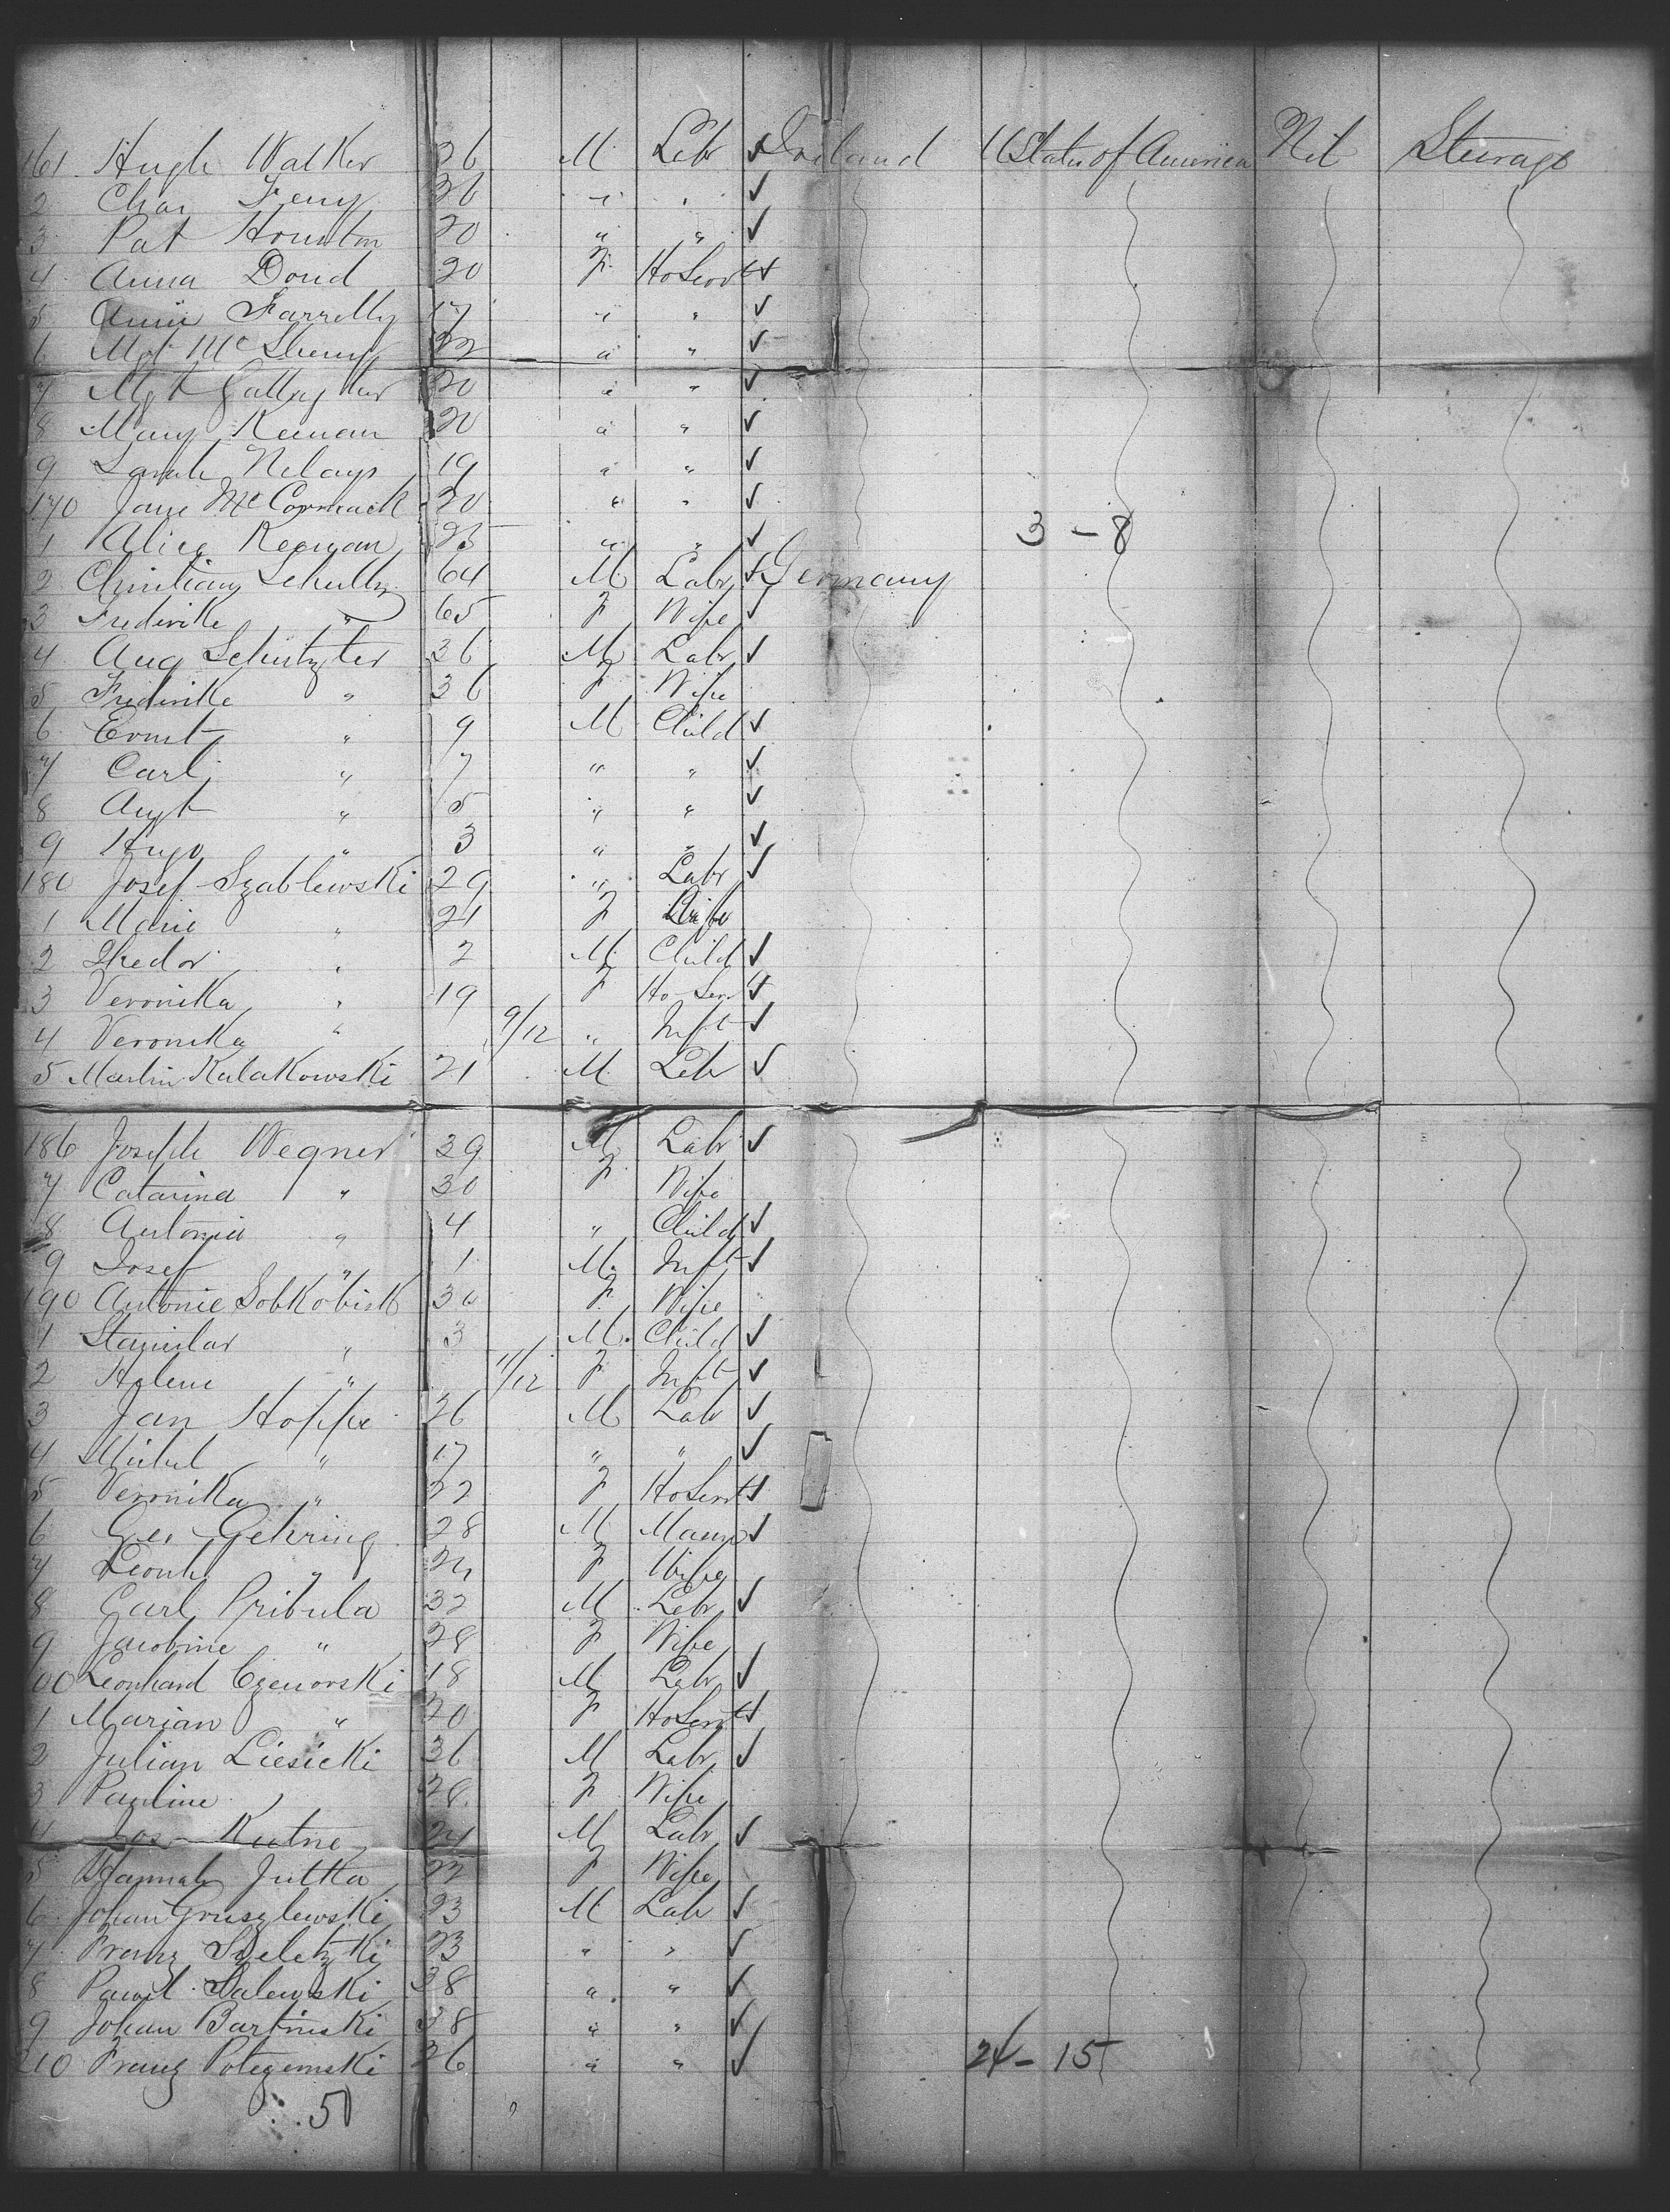 161 Hugh Walker 26 M Labr ✓ Ireland U States of America Nil Steerage
2 Chas Feny 36 " " ✓
3 Pat Houston 20 " " ✓
4 Anna Doud 20 F Ho Servt ✓
5 Annie Farrelly 17 " " ✓
6 Mgt McSherry 22 " " ✓
7 Mgt Gallagher 20 " " ✓
8 Mary Keenan 20 " " ✓
9 Sarah 19 " " ✓
170 Jane McCormack 20 " " ✓
1 Alice Keenan 25 " " ✓ 3 - 8
2 Christian Schultz 64 M Labr ✓ Germany
3 Frederike " 65 F Wife ✓
4 Aug Schutzter 36 M Labr ✓
5 Frederike " 36 F Wife
6 Ernst " 9 M Child ✓
7 Carl " 7 " " ✓
8 Augt " 5 " " ✓
9 Hugo " 3 " " ✓
180 Josef Szablewski 29 " Labr ✓
1 Marie " 21 F Wife
2 Thedor " 2 M Child ✓
3 Veronika " 19 F Ho Serv ✓
4 Veronika " 9/12 " Inft ✓
5 Martin Kalakowski 21 M Labr ✓
186 Joseph Wegner 39 M Labr ✓
7 Catarina " 30 F Wife
8 Antonia " 4 " Child ✓
9 Josef " 1 M Inft ✓
190 Antonie Sobkobisk 30 F Wife
1 Stanislar " 3 M Child ✓
2 Helene " 11/12 F Inft ✓
3 Jan Hoppe 26 M Labr ✓
4 Michel " 17 " " ✓
5 Veronika " 22 F Ho Servt ✓
6 Geo Gehring 28 M ✓
7 Leonh " 24 F Wife
8 Carl Pribula 32 M Labr ✓
9 Jacobine " 28 F Wife
00 Leonhard Czenorski 18 M Labr ✓
1 Marian " 20 F Ho Servt ✓
2 Julian Liesicki 36 M Labr ✓
3 Pauline " 28 F Wife
4 Jos Kutne 24 M Labr ✓
5 Hannah Jutka 22 F Wife
6 Johan Gruszlewski 23 M Labr ✓
7 Franz Sheletzki 23 " " ✓
8 Pawel Salewski 38 " " ✓
9 Johan Bartinski 38 " " ✓
210 Franz Potezemski 26 " " ✓ 24 - 15
50